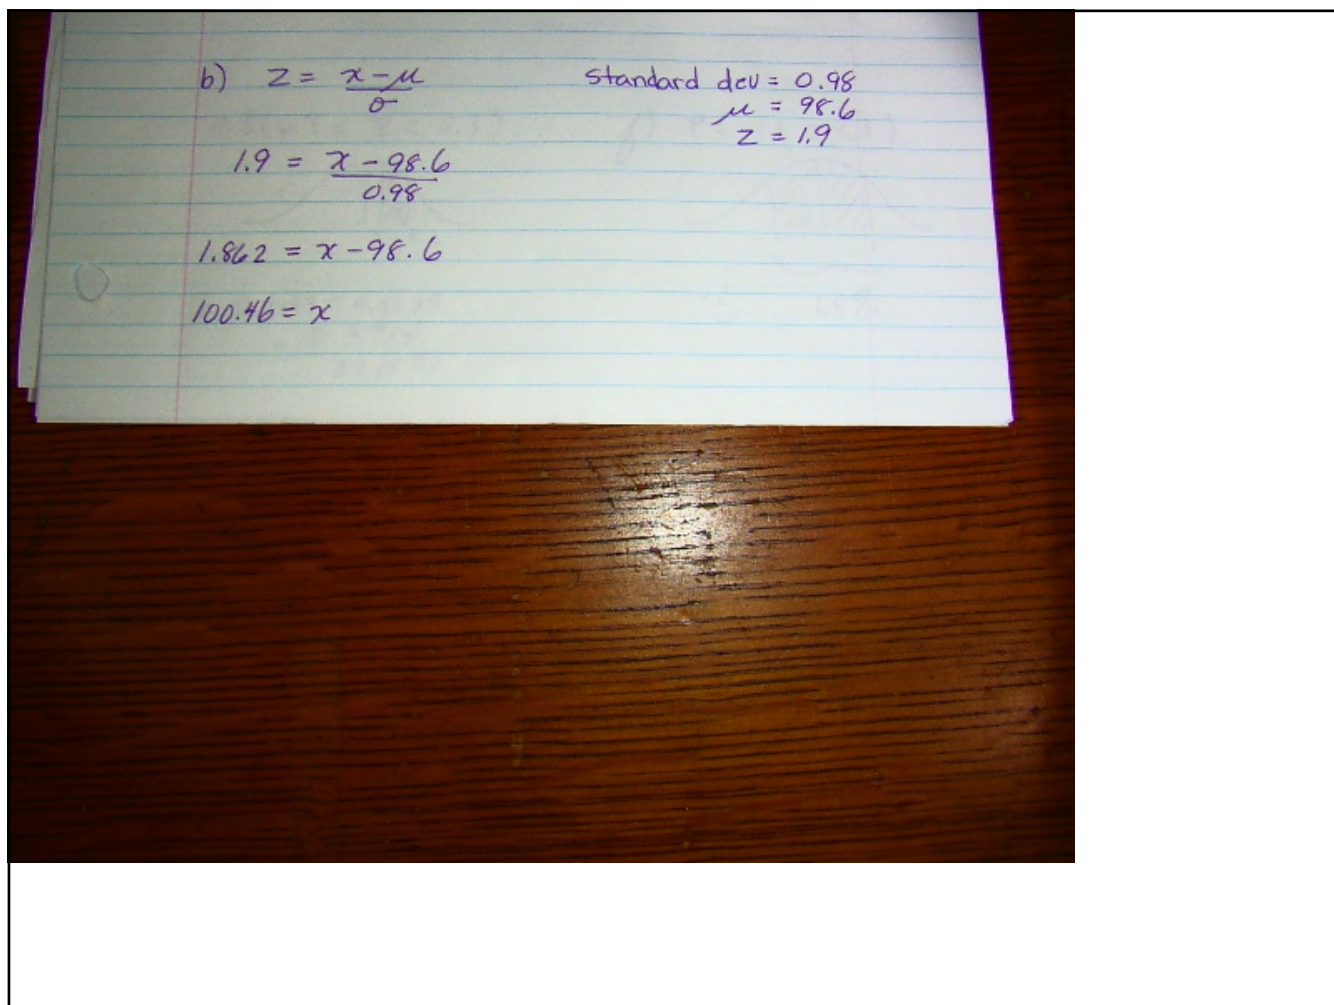 b) z = x - μ / σ
standard dev = 0.98
μ = 98.6
z = 1.9
1.9 = x - 98.6 / 0.98
1.862 = x - 98.6
100.46 = x